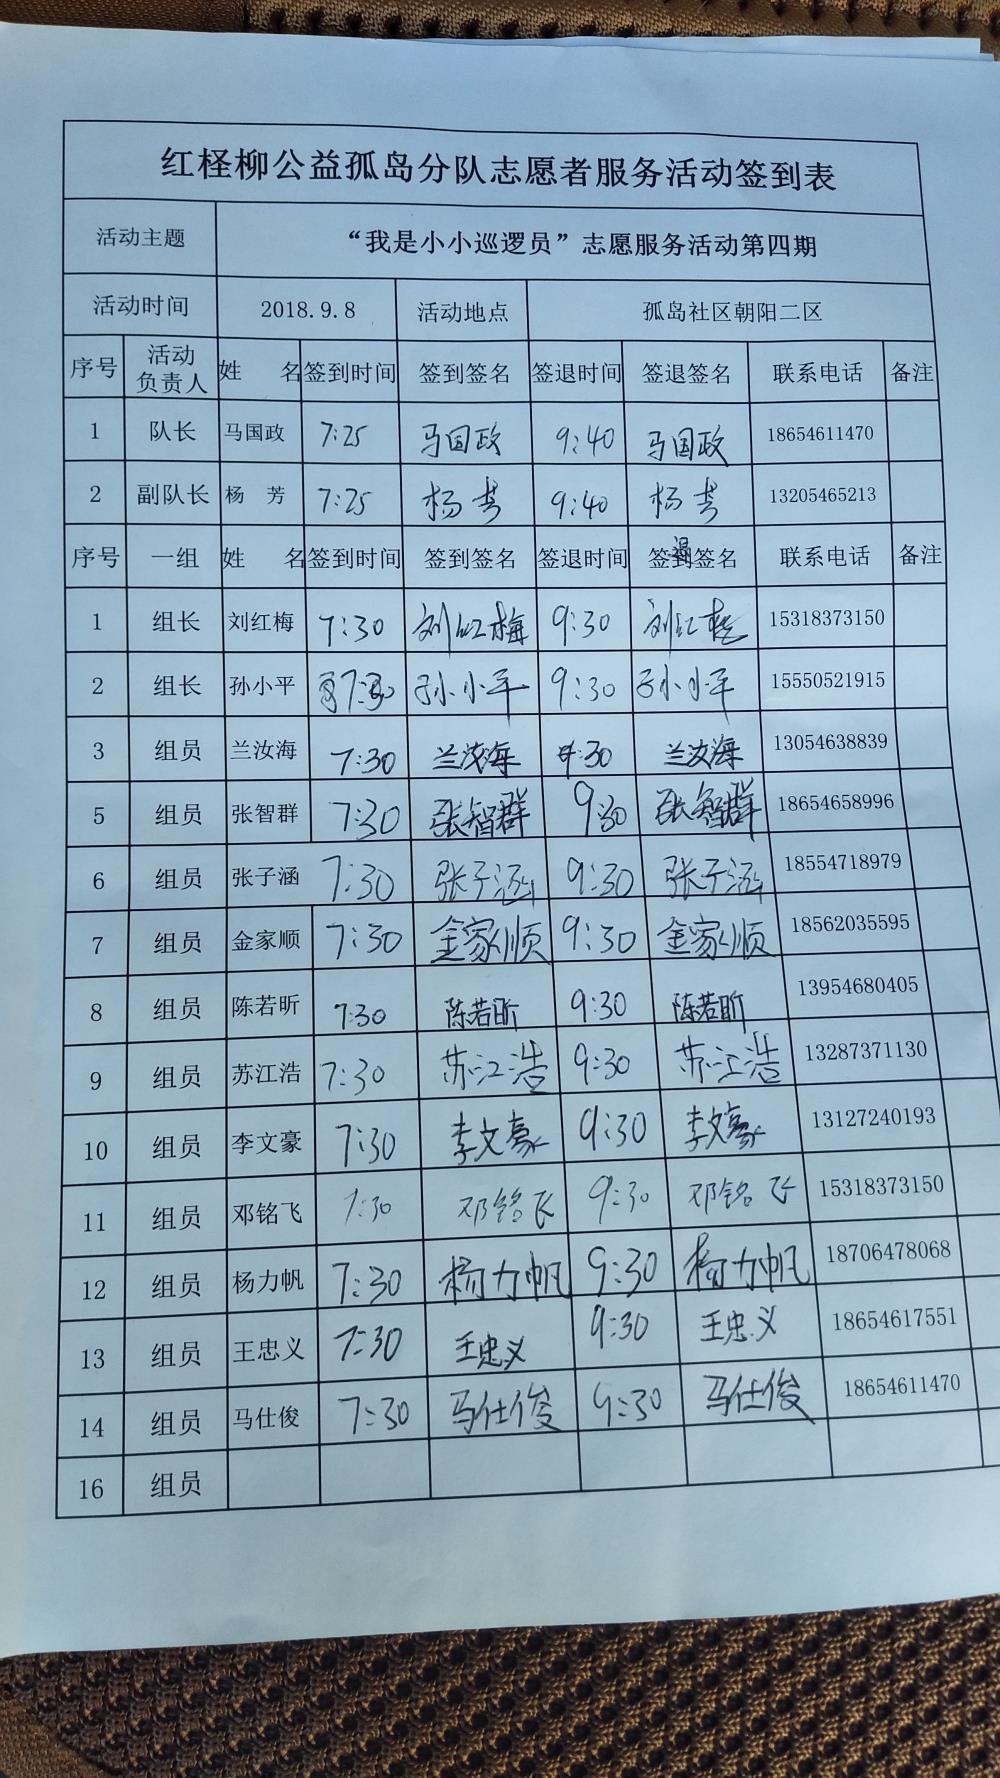 红柽柳公益孤岛分队志愿者服务活动签到表
活动主题 “我是小小巡逻员”志愿服务活动第四期
活动时间 2018.9.8 活动地点 孤岛社区朝阳二区
序号 活动负责人 姓 名 签到时间 签到签名 签退时间 签退签名 联系电话 备注
1 队长 马国政 7:25 马国政 9:40 马国政 18654611470
2 副队长 杨 芳 7:25 杨芳 9:40 杨芳 13205465213
序号 一组 姓 名 签到时间 签到签名 签退时间 签退签名 联系电话 备注
1 组长 刘红梅 7:30 刘红梅 9:30 刘红梅 15318373150
2 组长 孙小平 7:30 孙小平 9:30 孙小平 15550521915
3 组员 兰汝海 7:30 兰汝海 9:30 兰汝海 13054638839
5 组员 张智群 7:30 张智群 9:30 张智群 18654658996
6 组员 张子涵 7:30 张子涵 9:30 张子涵 18554718979
7 组员 金家顺 7:30 金家顺 9:30 金家顺 18562035595
8 组员 陈若昕 7:30 陈若昕 9:30 陈若昕 13954680405
9 组员 苏江浩 7:30 苏江浩 9:30 苏江浩 13287371130
10 组员 李文豪 7:30 李文豪 9:30 李文豪 13127240193
11 组员 邓铭飞 7:30 邓铭飞 9:30 邓铭飞 15318373150
12 组员 杨力帆 7:30 杨力帆 9:30 杨力帆 18706478068
13 组员 王忠义 7:30 王忠义 9:30 王忠义 18654617551
14 组员 马仕俊 7:30 马仕俊 9:30 马仕俊 18654611470
16 组员